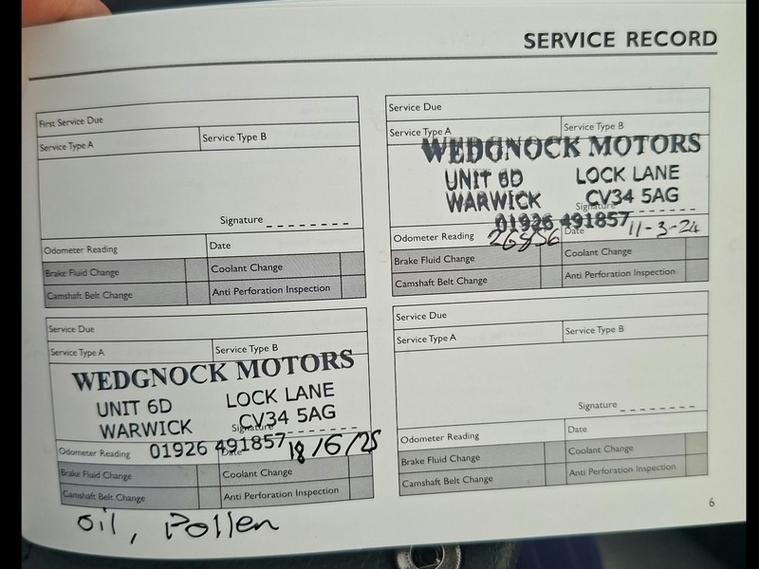 SERVICE RECORD
First Service Due
Service Type A Service Type B
Signature
Odometer Reading Date
Brake Fluid Change Coolant Change
Camshaft Belt Change Anti Perforation Inspection
Service Due
Service Type A Service Type B
WEDGNOCK MOTORS
UNIT 6D LOCK LANE
WARWICK CV34 5AG
Signature
01926 491857
Odometer Reading 26856 Date 11-3-24
Brake Fluid Change Coolant Change
Camshaft Belt Change Anti Perforation Inspection
Service Due
Service Type A Service Type B
WEDGNOCK MOTORS
UNIT 6D LOCK LANE
WARWICK CV34 5AG
Signature
Odometer Reading 01926 491857 Date 18/6/25
Brake Fluid Change Coolant Change
Camshaft Belt Change Anti Perforation Inspection
oil, Pollen
Service Due
Service Type A Service Type B
Signature
Odometer Reading Date
Brake Fluid Change Coolant Change
Camshaft Belt Change Anti Perforation Inspection
6